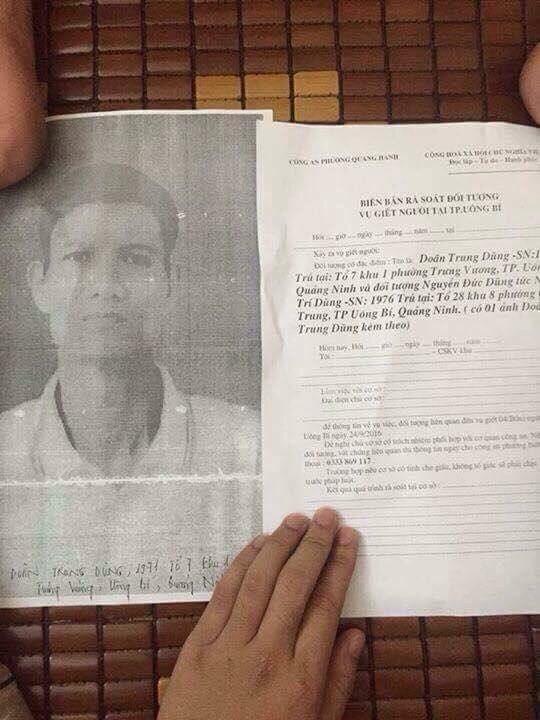 CÔNG AN PHƯỜNG QUANG HANH
CỘNG HOÀ XÃ HỘI CHỦ NGHĨA
Độc lập - Tự do - Hạnh phúc
BIÊN BẢN RÀ SOÁT ĐỐI TƯỢNG
VỤ GIẾT NGƯỜI TẠI TP.UÔNG BÍ
Hồi .... giờ .... ngày .... tháng .... năm ..... tại
Xảy ra vụ giết người:
Đối tượng có đặc điểm : Tên là: Doãn Trung Dũng -SN:1
Trú tại: Tổ 7 khu 1 phường Trưng Vương, TP. Uô
Quảng Ninh và đối tượng Nguyễn Đức Dũng tức N
Trí Dũng -SN: 1976 Trú tại: Tổ 28 khu 8 phường
Trung, TP Uông Bí, Quảng Ninh. ( có 01 ảnh Doã
Trung Dũng kèm theo)
Hôm nay, Hồi ..... giờ ..... ngày .... tháng ..... năm
Tôi : - CSKV khu
Làm việc với cơ sở :
Đại diện chủ cơ sở:
để thông tin về vụ việc, đối tượng liên quan đến vụ giết 04(Bốn) ngư
Uông Bí ngày 24/9/2016.
Đề nghị chủ cơ sở có trách nhiệm phối hợp với cơ quan công an. Nế
đối tượng, vật chứng liên quan thì thông tin ngay cho công an phường
thoại : 0333 869 117
Trường hợp nếu cơ sở cố tình che giấu, không tố giác sẽ phải chịu
trước pháp luật.
Kết quả quá trình rà soát tại cơ sở :
DOÃN TRUNG DŨNG, 1971 Tổ 7 khu 1
Trưng Vương, Uông Bí, Quảng Ni